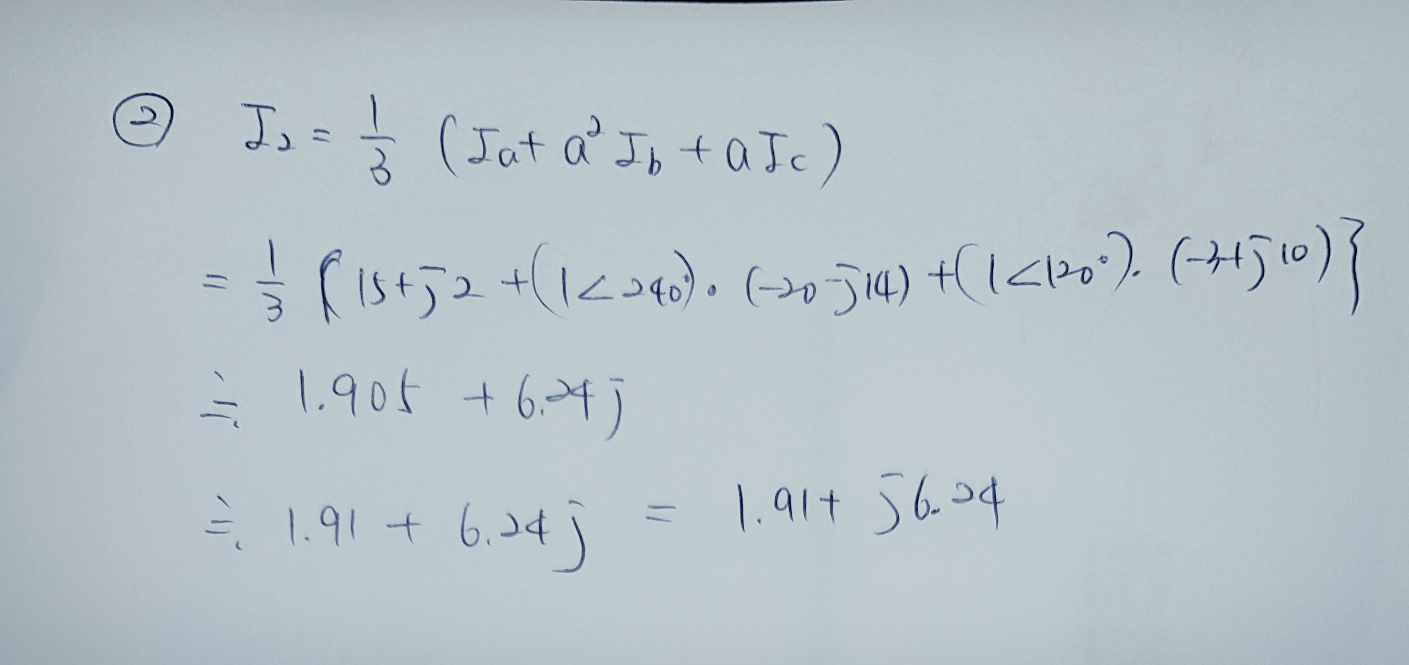 ② I₂ = 1/3 (Ia + a² Ib + a Ic)
= 1/3 { 15+j2 + (1∠240°)·(-20-j14) + (1∠120°)·(-3+j10) }
≒ 1.905 + 6.24j
≒ 1.91 + 6.24j = 1.91 + j6.24